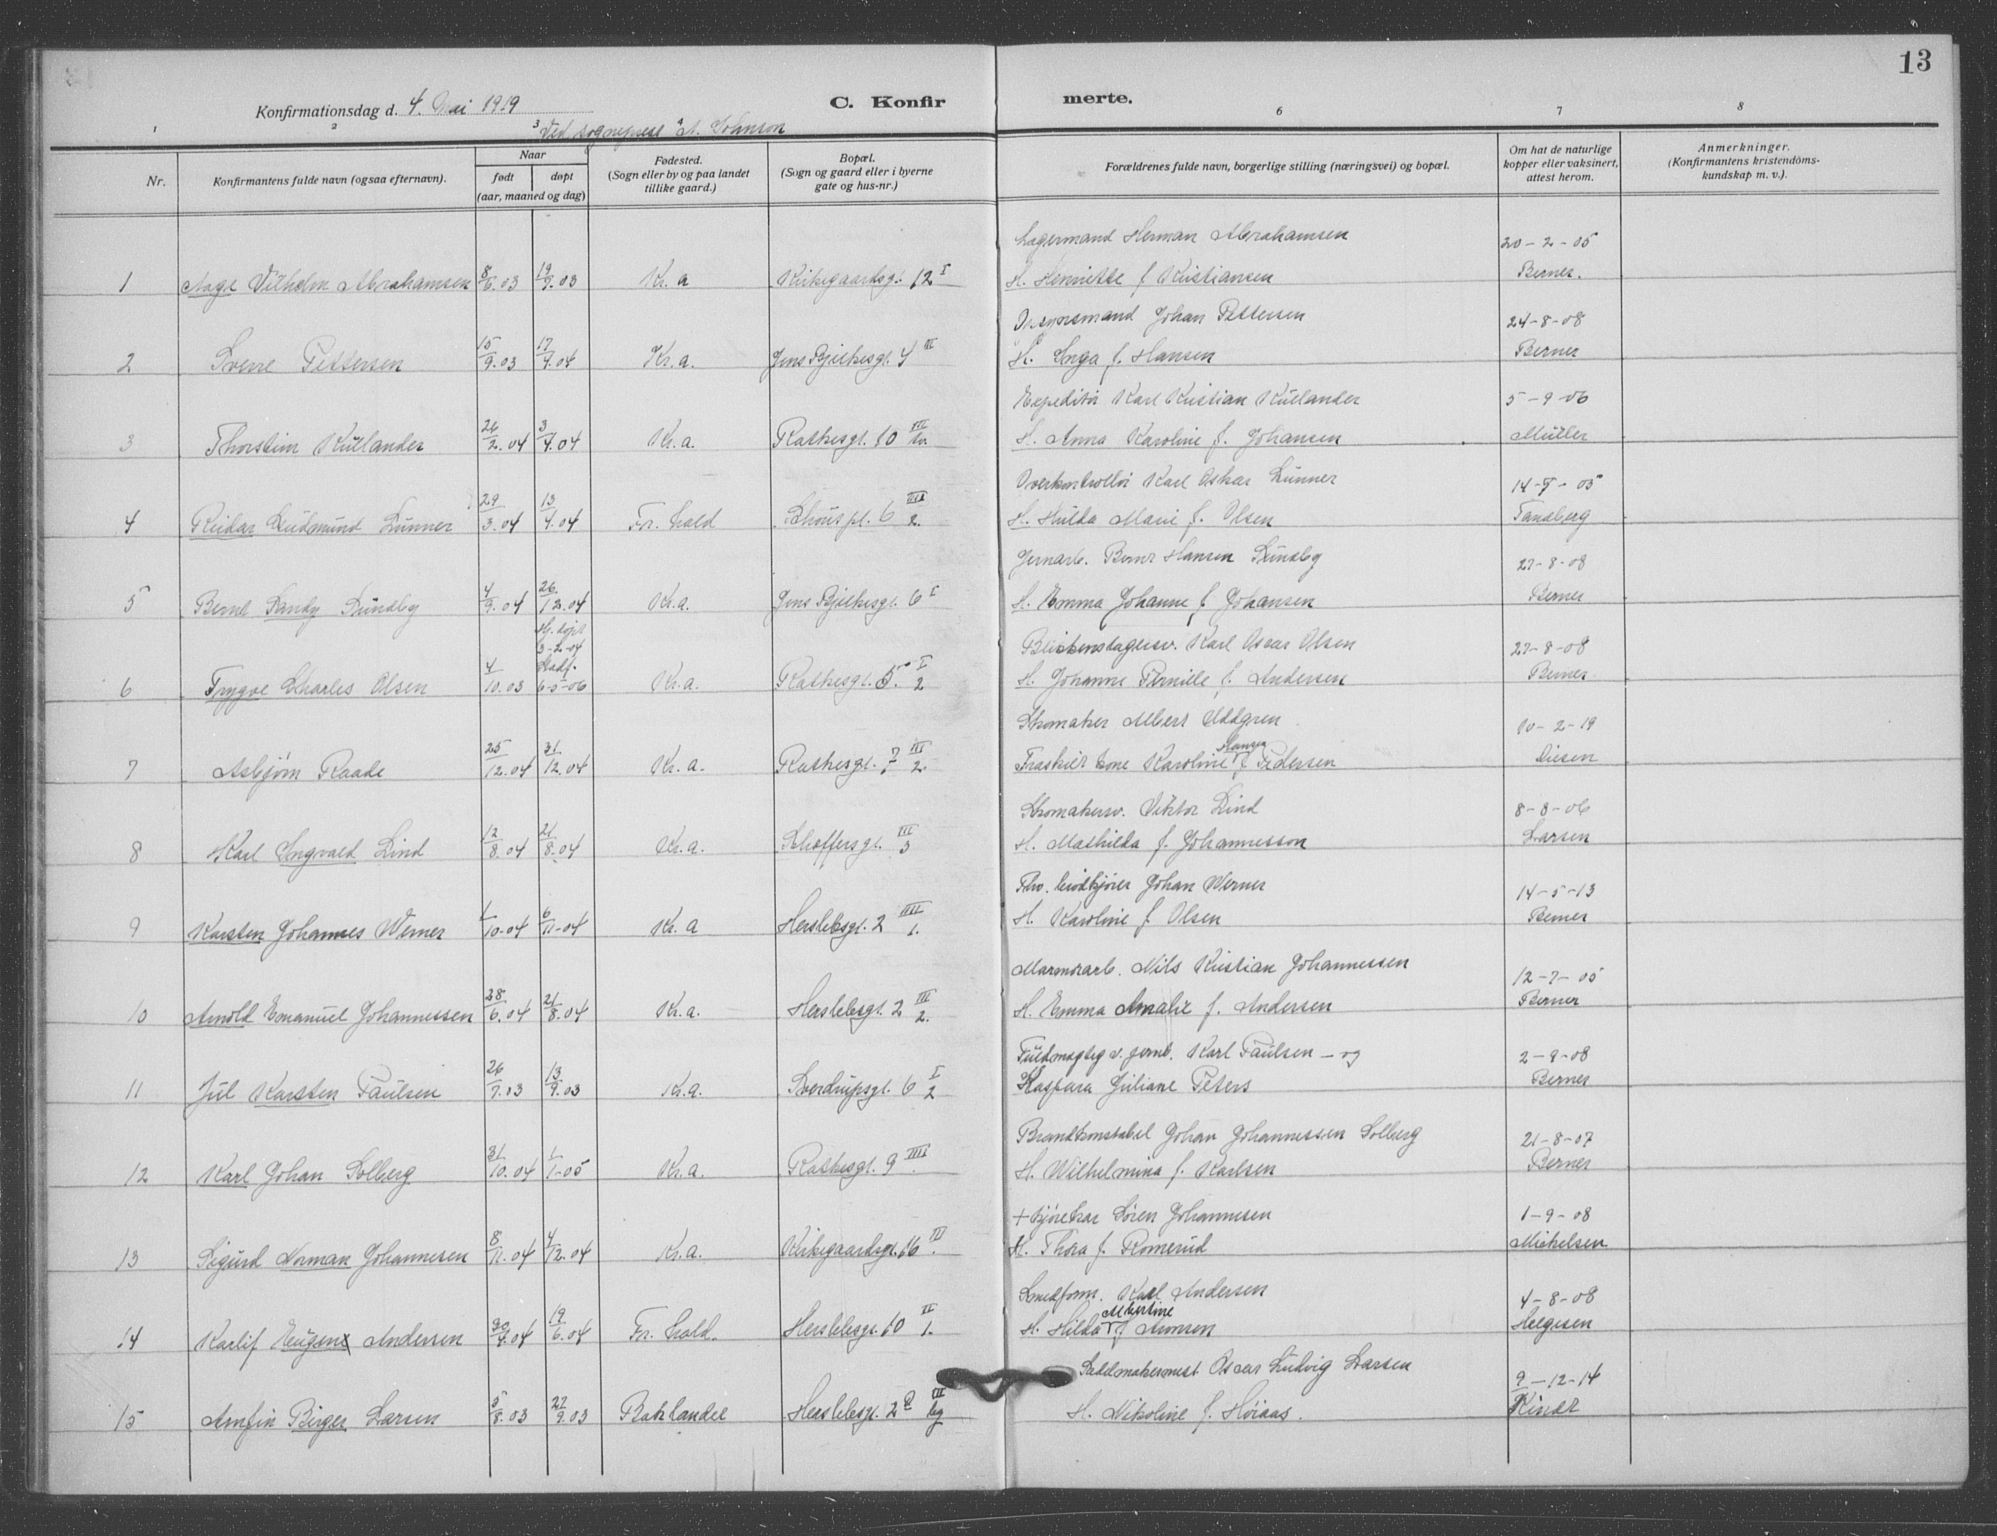 13
Konfirmationsdag d. 4. Mai 1919
C. Konfir
merte.
Ved sogneprest A. Johnson
1 2 3 4 6 7 8
Nr.
Konfirmantens fulde navn (ogsaa efternavn).
Naar
født døpt
(aar, maaned og dag)
Fødested.
(Sogn eller by og paa landet
tillike gaard.)
Bopæl.
(Sogn og gaard eller i byerne
gate og hus-nr.)
Forældrenes fulde navn, borgerlige stilling (næringsvei) og bopæl.
Om hat de naturlige
kopper eller vaksinert,
attest herom.
Anmerkninger.
(Konfirmantens kristendoms-
kundskap m. v.).
Lagermand Herman Abrahamsen 20-2-05
1 Aage Vilhelm Abrahamsen 8/6.03 19/9.03 Kr. a Kirkegaardsg. 12 I H. Henriette f. Kristiansen Berner.
Johan Pettersen 24-8-08
2 Sverre Pettersen 15/9.03 17/4.04 Kr. a. Jens Bjelkesgt. 4 III H. Inga f. Hansen Berner
Expeditør Karl Kristian Küllander 5-9-06
3 Thorstein Küllander 26/2.04 3/4.04 Kr. a. Rathesgt. 10 III H. Anna Karoline f. Johansen Müller
Overkontrollør Karl Oskar Lunner
4 Reidar Gudmund Lunner 29/3.04 13/4.04 Fr. hald Schous pl. 6 III 2. H. Hulda Marie f. Olsen Tandberg
Jernarb. Bernt Hansen Sundby 27-8-08
5 Bernt Sundby 4/9.04 26/12.04 Kr. a. Jens Bjelkesgt. 6 I H. Emma Johanne f. Johansen Berner
Hj. døpt
3-2-04
Stadf.
Blikkenslagersv. Karl Oscar Olsen 27-8-08
6 Trygve Charles Olsen 4/10.03 6-5-06 Kr. a. Rathesgt. 5. I 2 H. Johanne Pernille f. Andersen Berner
Skomaker Albert Uddgren 10-2-19
7 Asbjørn Raade 25/12.04 31/12.04 Kr. a. Rathesgt. 7 III 2. Fraskilt kone Karoline Hansen f. Pedersen Diesen
Skomakersv. Viktor Lind 8-8-06
8 Karl Ingvald Lind 12/8.04 21/8.04 Kr. a. Schæffersgt. III 3 H. Mathilda f. Johannesson Larsen
Johan Werner 14-5-13
9 Karsten Johannes Werner 1/10.04 6/11.04 Kr. a Herslebsgt. 2 IIII 1. H. Karoline f. Olsen Berner
Marmorarb. Nils Kristian Johannessen 12-7-05
10 Arnold Emanuel Johannessen 28/6.04 21/8.04 Kr. a. Herslebsgt. 2 III 2. H. Emma Amalie f. Andersen Berner
Fuldmægtig v. jernb. Karl Paulsen - og 2-9-08
11 Jul Karsten Paulsen 26/7.03 13/9.03 Kr. a. Sverdrupsgt. 6 I 2 Kaspara Juliane Peters Berner
Brandkonstabel Johan Johannessen Solberg 21-8-07
12 Karl Johan Solberg 31/10.04 1/1-05 Kr. a. Rathesgt. 9 IIII H. Wilhelmina f. Karlsen Berner
+ Kjørekar Søren Johannesen 1-9-08
13 Sigurd Norman Johannesen 8/11.04 4/12.04 Kr. a. Kirkegaardsgt. 16 H. Thora f. Romerud Michelsen
Smedform. Karl Andersen 4-8-08
14 Karlif Eugen Andersen 30/4.04 19/6.04 Fr. hald. Herslebsgt. 10 II 1. H. Hilda Albertine f. Helgesen
Sadelmakermest Oscar Ludvig Larsen 9-12-14
15 Arnfin Birger Larsen 5/8.03 27/9.03 Baklandet Herslebsgt. 2 III H. Nikoline f. Høiaas.